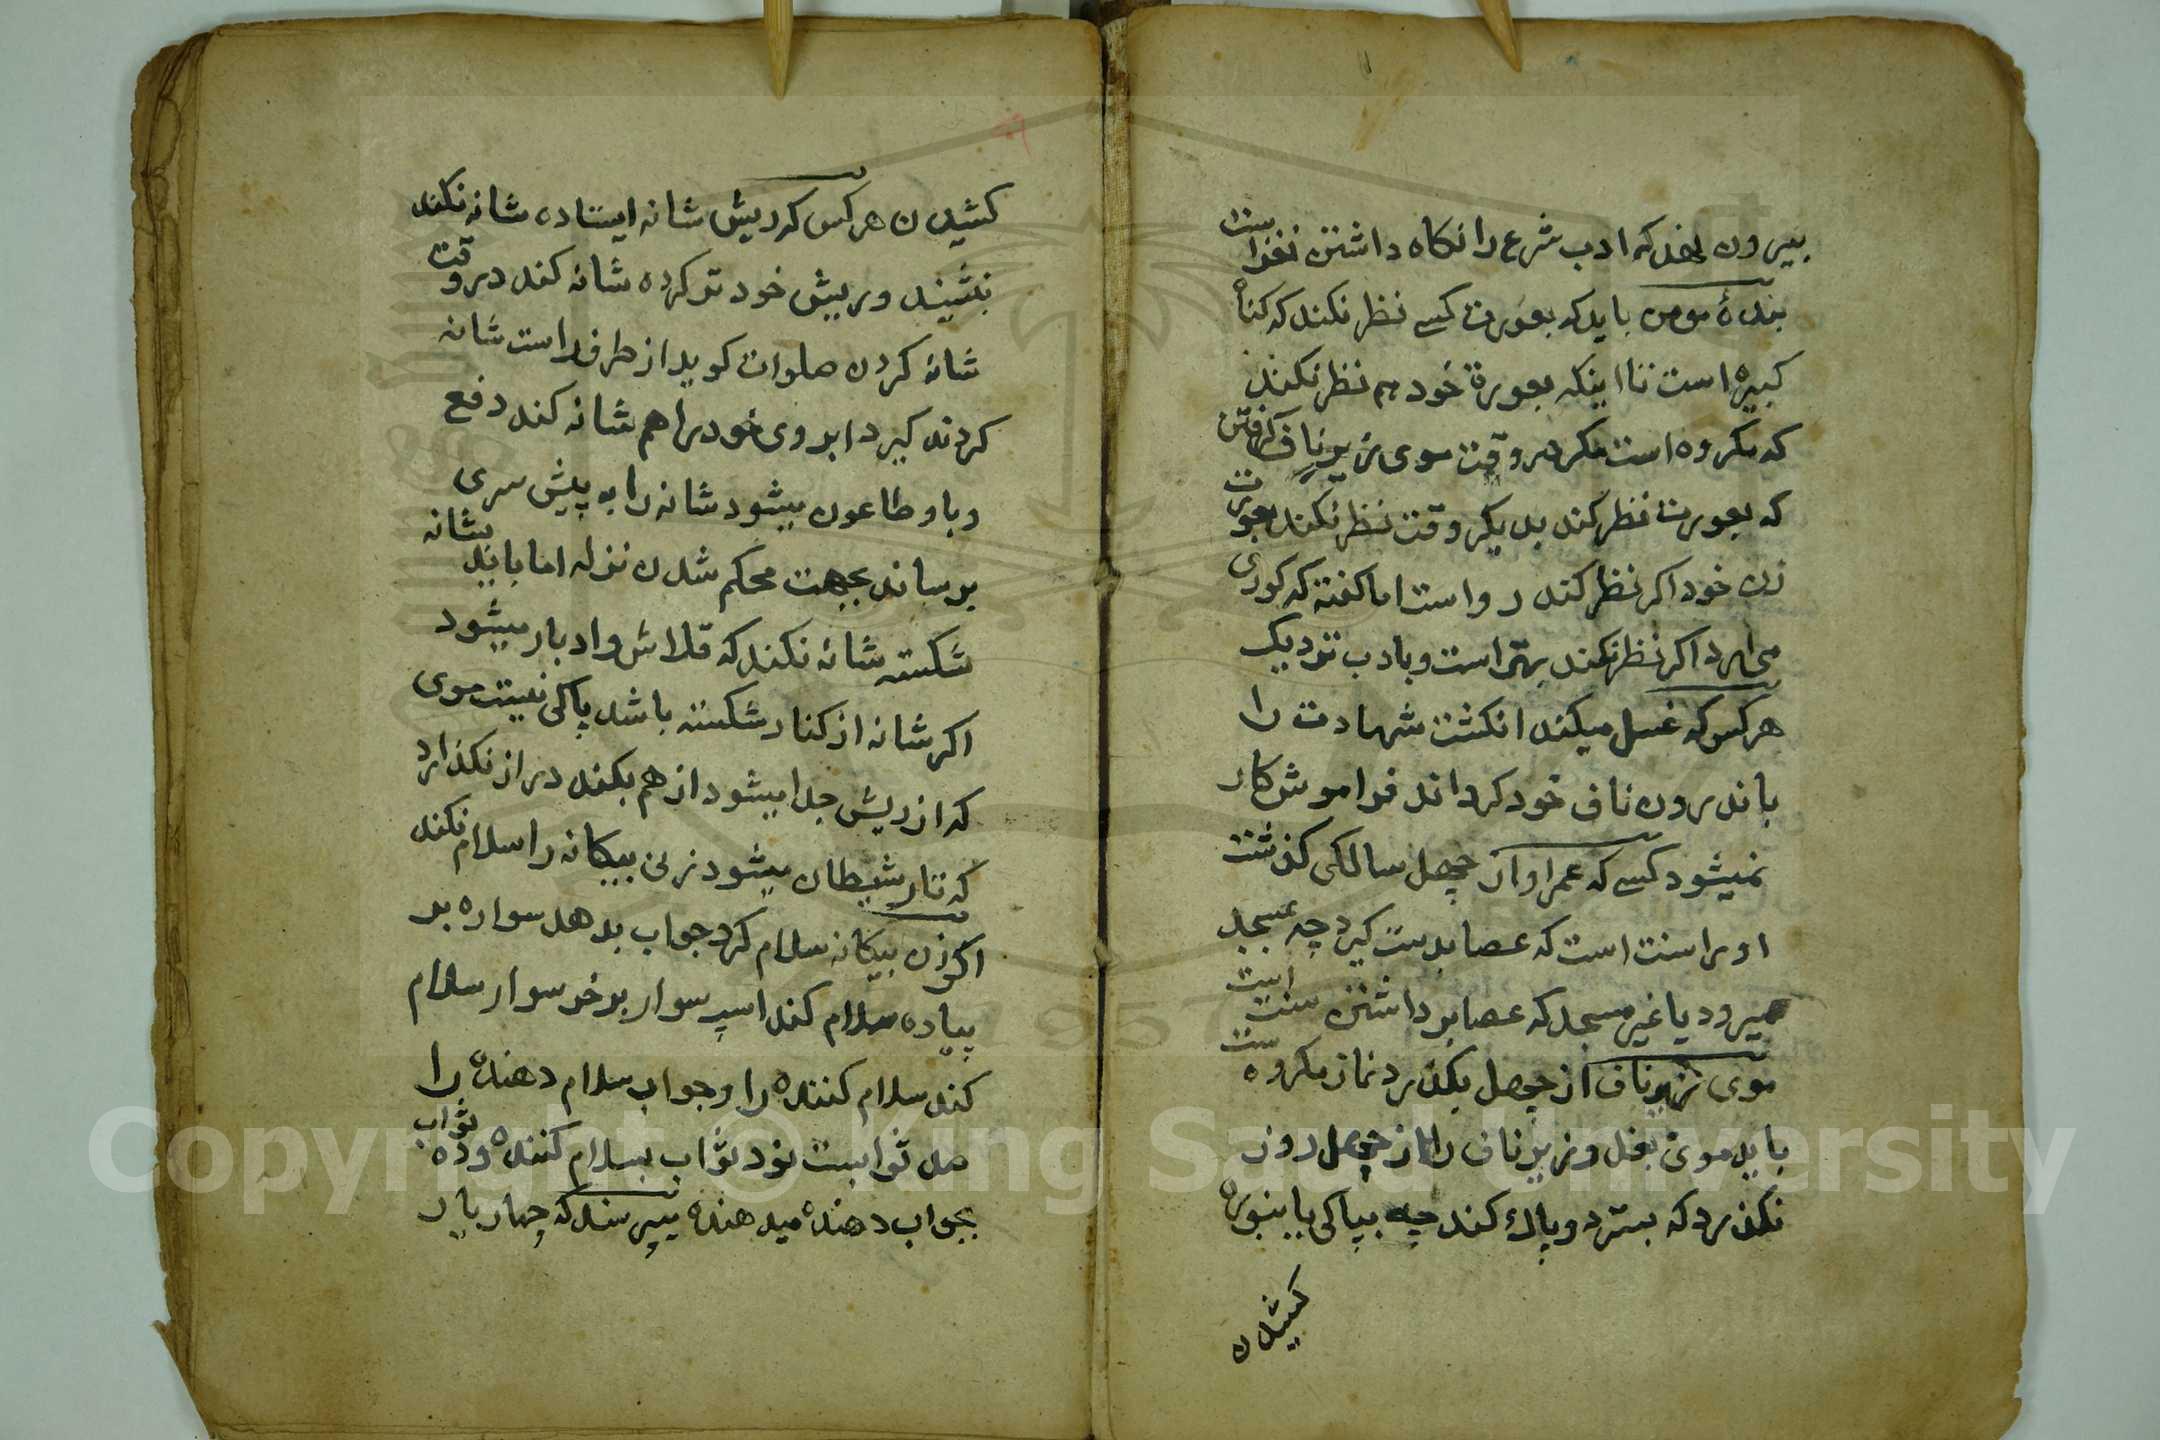 بیرون نهد که ادب شرع را نکاه داشتن نغزاست
بندهٔ مومن باید که بعورت کسے نظر نکند که کناه
کبیره است تا اینکه بعورة خود هم نظر نکند
که مکروه است مکر در وقت موی زیر ناف کرفتن
که بعورت نظر کند بدیکر وقت نظر نکند بعورت
زن خود اکر نظر کند رواست اما کفته که کوری
می ارد اکر نظر نکند بهتر است و بادب نزدیک
هر کس که غسل میکند انکشت شهادت را
باندرون ناف خود کرداند فراموش کار
نمیشود کسے که عمر او از چهل سالکی کذشت
او را سنت است که عصا بدست کیرد چه بمسجد
میرود یا غیر مسجد که عصا برداشتن سنت است
موی زیر ناف از چهل بکذرد نماز مکروه ست
باید موی بغل و زیر ناف را از چهل روز
نکذرد که بسترد و پاك کند چه بپاکی یا بنوره
کشیدن
کشیدن هر کس که ریش شانه ایستاده شانه نکند
بنشیند و ریش خود تر کرده شانه کند در وقت
شانه کردن صلوات کوید از طرف راست شانه
کردند کیرد ابروی خود را هم شانه کند دفع
وبا و طاعون میشود شانه را به پیش سری
برساند بجهت محکم شدن نزله اما باید بشانه
شکسته شانه نکند که قلاش و ادبار میشود
اکر شانه از کنار شکسته باشد پاکی نیست موی
که از ریش جدا میشود از هم بکند دراز نکذارد
که تار شیطان میشود زنی بیکانه را سلام نکند
اکر زن بیکانه سلام کرد جواب بدهد سواره بر
پیاده سلام کند اسپ سوار بر خر سوار سلام
کند سلام کننده را و جواب سلام دهنده را
صد ثوابست نود ثواب بسلام کننده و ده ثواب
بجواب دهنده میدهند میپرسند که چهار یار
Copyright © King Saud University
1957